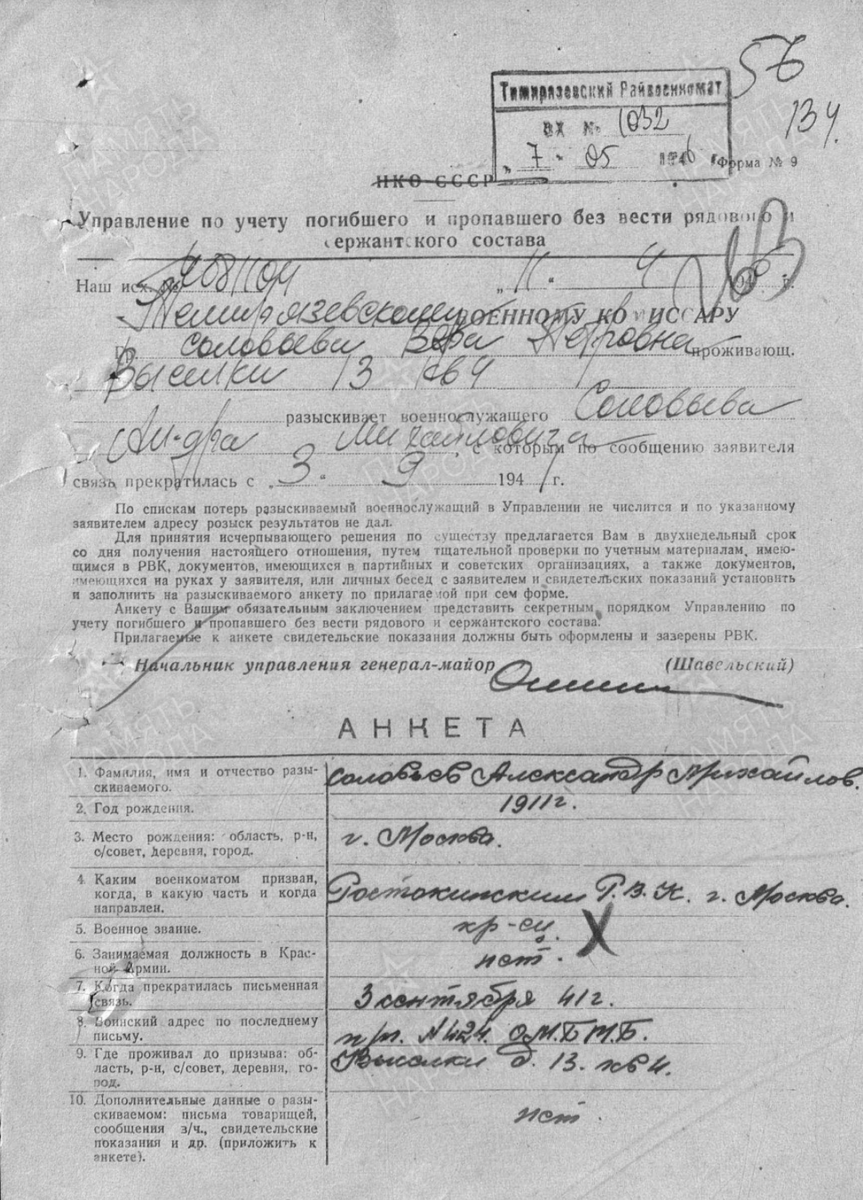 56
134.
Тимирязевский Райвоенкомат
ВХ № 1032
„7 - 05 1946 г.
Форма № 9
НКО СССР
Управление по учету погибшего и пропавшего без вести рядового и
сержантского состава
Наш исх. № „11. 4 г.
Темирязевскому ВОЕННОМУ КОМИССАРУ
Гр. Соловьева Вера Петровна проживающ.
Выселки 13 кв 4
разыскивает военнослужащего Соловьева
Ал-дра Михайловича, с которым по сообщению заявителя
связь прекратилась с 3. 9 1941 г.
По спискам потерь разыскиваемый военнослужащий в Управлении не числится и по указанному
заявителем адресу розыск результатов не дал.
Для принятия исчерпывающего решения по существу предлагается Вам в двухнедельный срок
со дня получения настоящего отношения, путем тщательной проверки по учетным материалам, имею-
щимся в РВК, документов, имеющихся в партийных и советских организациях, а также документов,
имеющихся на руках у заявителя, или личных бесед с заявителем и свидетельских показаний установить
и заполнить на разыскиваемого анкету по прилагаемой при сем форме.
Анкету с Вашим обязательным заключением представить секретным порядком Управлению по
учету погибшего и пропавшего без вести рядового и сержантского состава.
Прилагаемые к анкете свидетельские показания должны быть оформлены и зазерены РВК.
Начальник управления генерал-майор (Шавельский)
АНКЕТА
1. Фамилия, имя и отчество разы-
скиваемого.
Соловьев Александр Михайлов.
2. Год рождения.
1911г.
3. Место рождения: область, р-н,
с/совет, деревня, город.
г. Москва.
4. Каким военкоматом призван,
когда, в какую часть и когда
направлен.
Ростокинским Р.В.К. г. Москва.
5. Военное звание.
кр-ец.
6. Занимаемая должность в Крас-
ной Армии.
нет.
7. Когда прекратилась письменная
связь.
3 сентября 41г.
8. Воинский адрес по последнему
письму.
п/п. №424 О.М.Б М.Б.
9. Где проживал до призыва: об-
ласть, р-н, с/совет, деревня, го-
род.
Выселки д. 13. кв 4.
10. Дополнительные данные о разы-
скиваемом: письма товарищей,
сообщения з/ч., свидетельские
показания и др. (приложить к
анкете).
нет.